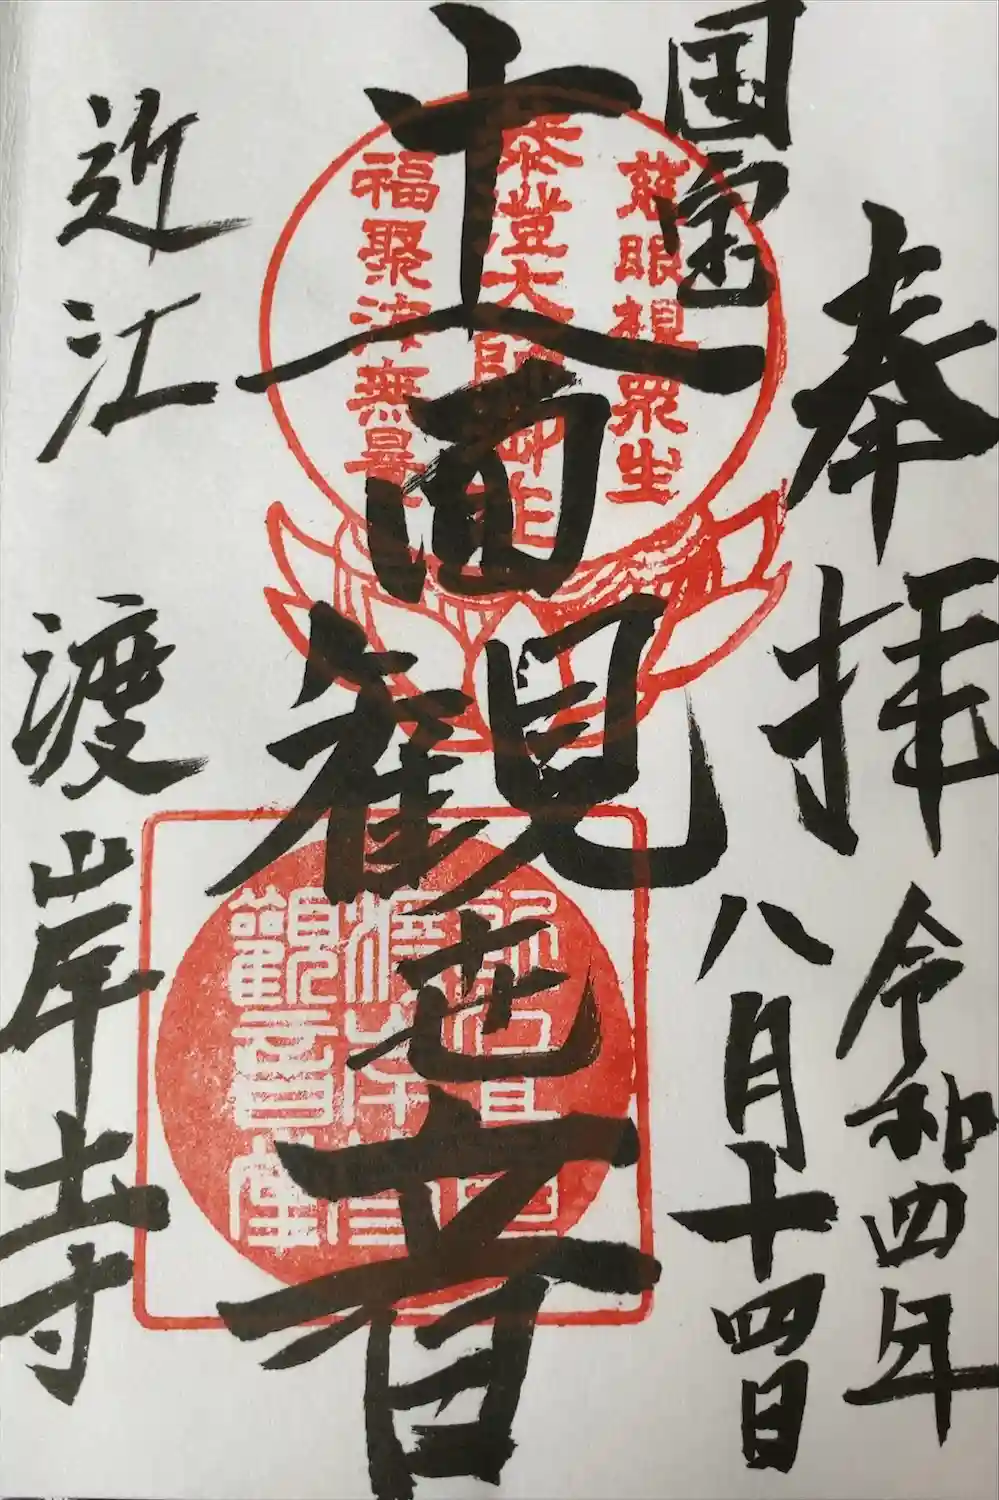 奉拝
令和四年
国宝
八月十四日
十一面
観世音
近江
渡岸寺
慈眼視衆生
泰澄大師御作
福聚海無量
渡岸寺
観音堂